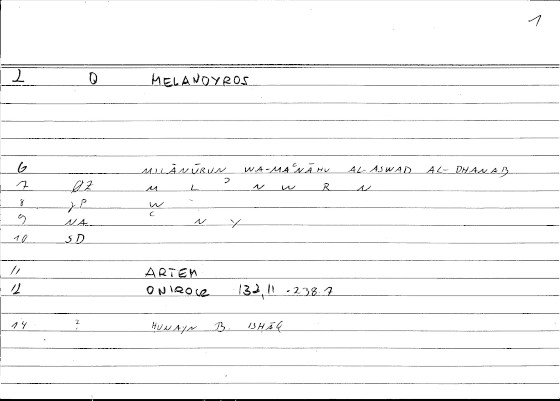 1
2 Q MELANOYROS
6 MILĀNŪRUN WA-MAʿNĀHU AL-ASWAD AL-DHANAB
7 ØZ M L ʾ N W R N
8 γP W
9 NA ʿ N Y
10 SD
11 ARTEM
12 ONIROCR 132,11 - 238.7
14 ? ḤUNAYN B. ISḤĀQ